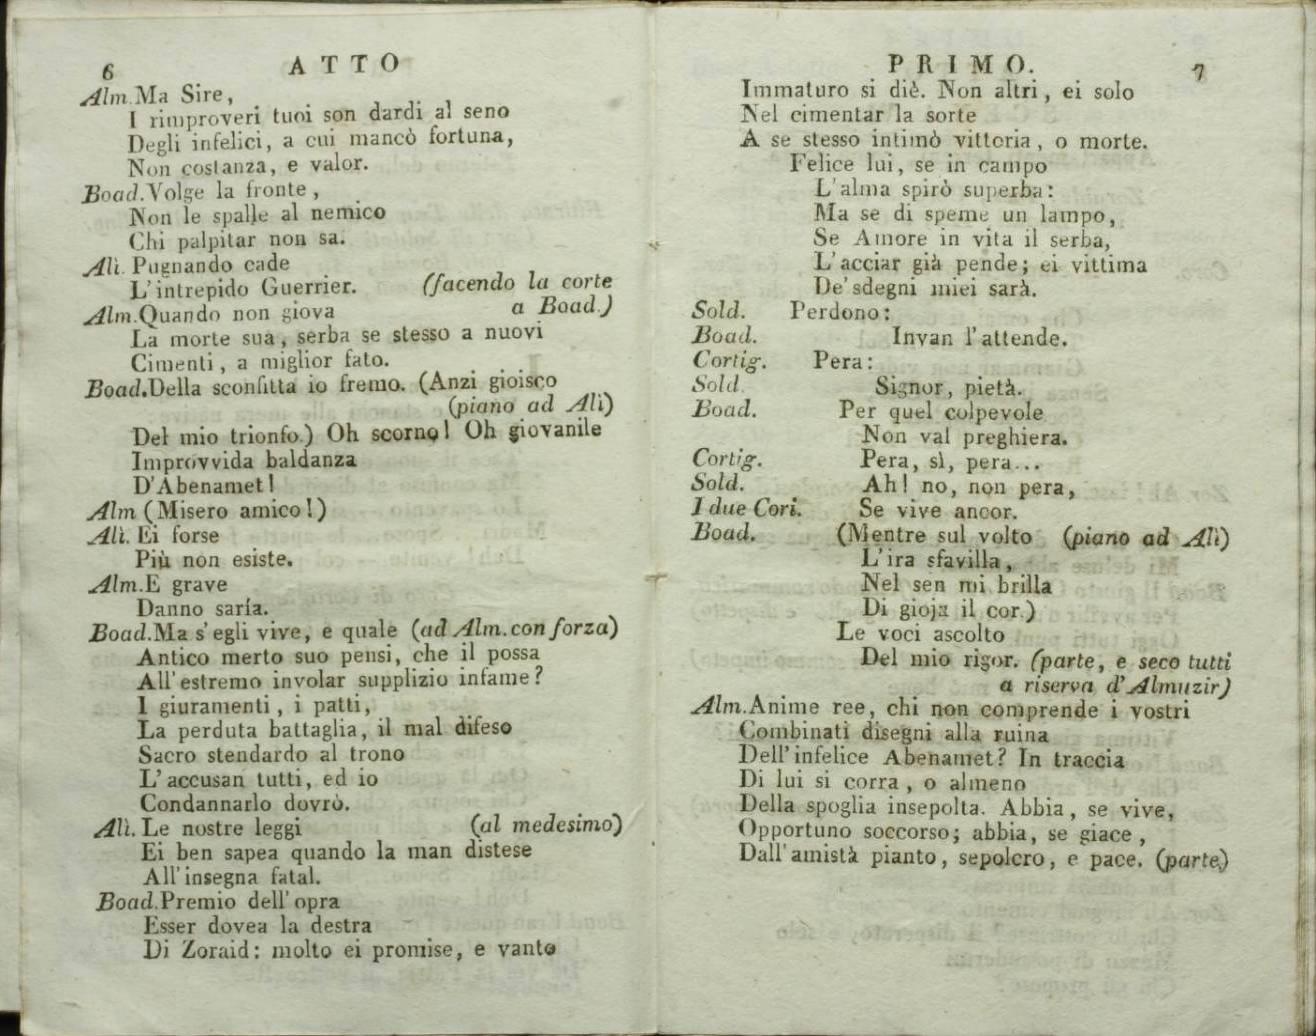 6 ATTO
Alm. Ma Sire,
I rimproveri tuoi son dardi al seno
Degli infelici, a cui mancò fortuna,
Non costanza, e valor.
Boad. Volge la fronte,
Non le spalle al nemico
Chi palpitar non sa.
Alì. Pugnando cade
L'intrepido Guerrier. (facendo la corte
Alm. Quando non giova a Boad.)
La morte sua, serba se stesso a nuovi
Cimenti, a miglior fato.
Boad. Della sconfitta io fremo. (Anzi gioisco
(piano ad Alì)
Del mio trionfo.) Oh scorno! Oh giovanile
Improvvida baldanza
D'Abenamet!
Alm (Misero amico!)
Alì. Ei forse
Più non esiste.
Alm. E grave
Danno saría.
Boad. Ma s'egli vive, e quale (ad Alm. con forza)
Antico merto suo pensi, che il possa
All'estremo involar supplizio infame?
I giuramenti, i patti,
La perduta battaglia, il mal difeso
Sacro stendardo al trono
L'accusan tutti, ed io
Condannarlo dovrò.
Alì. Le nostre leggi (al medesimo)
Ei ben sapea quando la man distese
All'insegna fatal.
Boad. Premio dell'opra
Esser dovea la destra
Di Zoraid: molto ei promise, e vanto
PRIMO. 7
Immaturo si diè. Non altri, ei solo
Nel cimentar la sorte
A se stesso intimò vittoria, o morte.
Felice lui, se in campo
L'alma spirò superba:
Ma se di speme un lampo,
Se Amore in vita il serba,
L'acciar già pende; ei vittima
De' sdegni miei sarà.
Sold. Perdono:
Boad. Invan l'attende.
Cortig. Pera:
Sold. Signor, pietà.
Boad. Per quel colpevole
Non val preghiera.
Cortig. Pera, sì, pera...
Sold. Ah! no, non pera,
I due Cori. Se vive ancor.
Boad. (Mentre sul volto (piano ad Alì)
L'ira sfavilla,
Nel sen mi brilla
Di gioja il cor.)
Le voci ascolto
Del mio rigor. (parte, e seco tutti
a riserva d'Almuzir)
Alm. Anime ree, chi non comprende i vostri
Combinati disegni alla ruina
Dell'infelice Abenamet? In traccia
Di lui si corra, o almeno
Della spoglia insepolta. Abbia, se vive,
Opportuno soccorso; abbia, se giace,
Dall'amistà pianto, sepolcro, e pace. (parte)